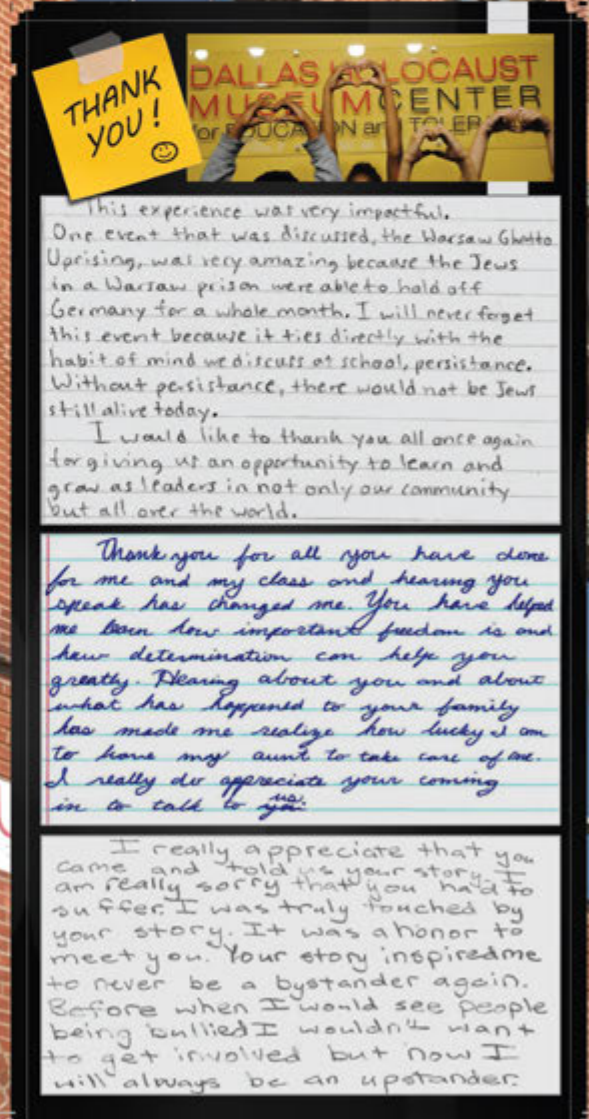 THANK
YOU!
DALLAS HOLOCAUST
MUSEUM CENTER
for EDUCATION and TOLER
This experience was very impactful.
One event that was discussed, the Warsaw Ghetto
Uprising, was very amazing because the Jews
in a Warsaw prison were able to hold off
Germany for a whole month. I will never forget
this event because it ties directly with the
habit of mind we discuss at school, persistance.
Without persistance, there would not be Jews
still alive today.
I would like to thank you all once again
for giving us an opportunity to learn and
grow as leaders in not only our community
but all over the world.
Thank you for all you have done
for me and my class and hearing you
speak has changed me. You have helped
me learn how important freedom is and
how determination can help you
greatly. Hearing about you and about
what has happened to your family
has made me realize how lucky I am
to have my aunt to take care of me.
I really do appreciate your coming
in to talk to us.
I really appreciate that you
came and told us your story. I
am really sorry that you had to
suffer. I was truly touched by
your story. It was a honor to
meet you. Your story inspired me
to never be a bystander again.
Before when I would see people
being bullied I wouldn't want
to get involved but now I
will always be an upstander.